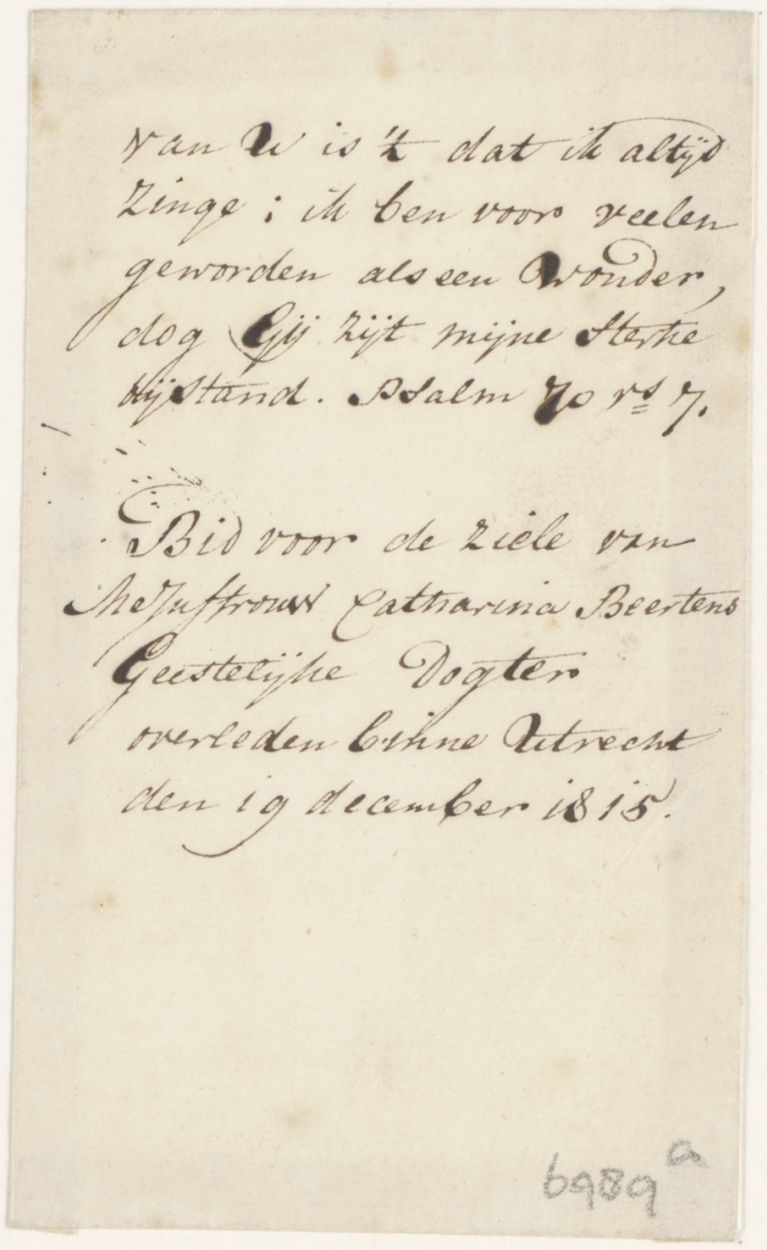 van U is 't dat ik altijd
Zinge; ik ben voor veelen
geworden als een Wonder,
dog Gij zijt mijne Sterke
bijstand. Psalm 70 vs 7.
Bid voor de ziele van
MeJuffrouw Catharina Beertens
Geestelijke Dogter
overleden binne Utrecht
den 19 december 1815.
6989a